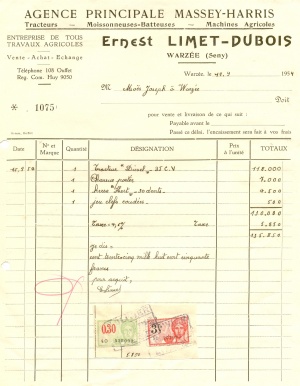 AGENCE PRINCIPALE MASSEY-HARRIS
Tracteurs - Moissonneuses-Batteuses - Machines Agricoles
ENTREPRISE DE TOUS
TRAVAUX AGRICOLES
Vente - Achat - Echange
Téléphone 108 Ouffet
Reg. Com. Huy 9050
Ernest LIMET-DUBOIS
WARZÉE (Seny)
Warzée, le 19
M Joseph à Warzée
Doit
* 1075
pour vente et livraison de ce qui suit :
Payable avant le
Passé ce délai, l'encaissement sera fait à vos frais
Date N° et Marque Quantité DÉSIGNATION Prix à l'unité TOTAUX
1 Tracteur "Diesel" 25 C.V 118.000
1 7.000
1 herse 30 dents 4.500
1 jeu clefs 500
130.000
Taxe 4,5% Taxes 5.850
135.850
cent trente cinq mille huit cent cinquante
francs
pour acquit,
0.30
3F
5850